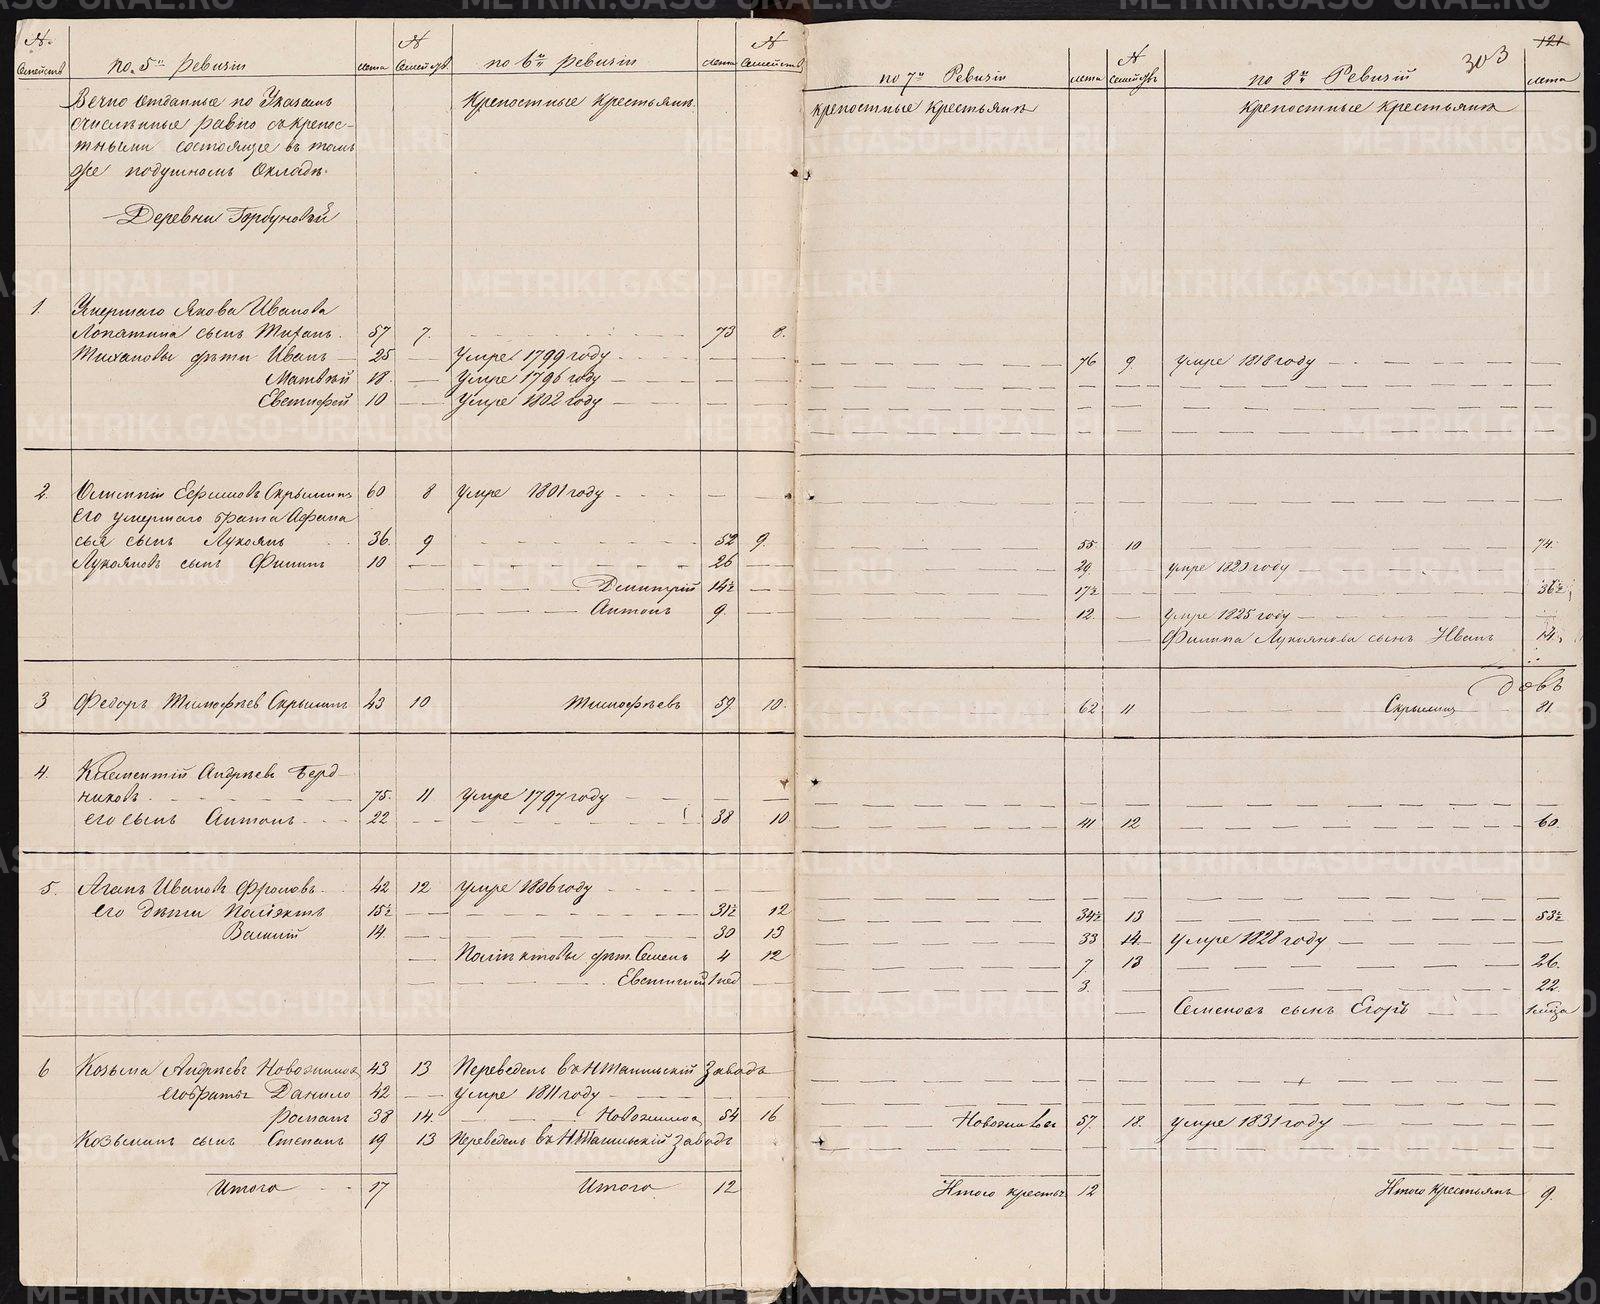 № Семействъ
по 5й ревизіи
лета
№ Семействъ
по 6й ревизіи
лета
№ Семействъ
по 7й Ревизіи
лета
№ Семействъ
по 8й Ревизій
лета
303
121
Вечно отданные по Указамъ
счисленные равно съ крепос-
тными состоящіе въ томъ
же подушномъ Окладѣ.
Деревни Горбуновой
Крепостные Крестьяне
крепостные Крестьяне
Крепостные Крестьяне
1. Умершаго Якова Иванова
Лопатина сынъ Тиханъ 57 7. 73 8. 76 9. умре 1818 году
Тихановы дѣти Иванъ 25 Умре 1799 году
Матвѣй 18. Умре 1796 году
Евстифей 10 Умре 1802 году
2. Ефимовъ Скрыминъ 60 8 умре 1801 году
его умершаго брата Афана
сья сынъ Лукоянъ 36. 9 52 9. 55 10 74.
Лукояновъ сынъ Филипъ 10 26 29 умре 1820 году
Дмитрій 14½ 17½ 36½
Антонъ 9. 12. умре 1825 году
Филипа Лукоянова сынъ Иванъ 14.
довъ
3 Федоръ Тимофѣев Скрыминъ 43 10 Тимофѣевъ 59 10. 62 11 Скрыминъ 81.
4. Климентий Андрѣевъ Берд-
никовъ 75. 11 умре 1797 году
его сынъ Антонъ 22 38 10. 41 12 60.
5. Агапъ Ивановъ Фроловъ 42 12 умре 1806 году
его дѣти Поліектъ 15½ 31½ 12 34½ 13 53½
Василій 14. 30 13 33 14 умре 1828 году
Поліектовы дѣт. Семенъ 4 12 7. 13 26.
Евстигней 1 нед 3. 22.
Семеновъ сынъ Егоръ
6 Козьма Андрѣевъ Новожилов 43 13 Переведенъ въ Н Тагильскій Заводъ
его братья Данило 42 умре 1811 году
Романъ 38 14. Новожилов 54 16 Новожиловъ 57. 18. умре 1831 году
Козьминъ сынъ Степанъ 19 13 Переведенъ въ НТагильскій заводъ
Итого 17
Итого 12
Итого крестьян 12
Итого Крестьянъ 9.
METRIKI.GASO-URAL.RU